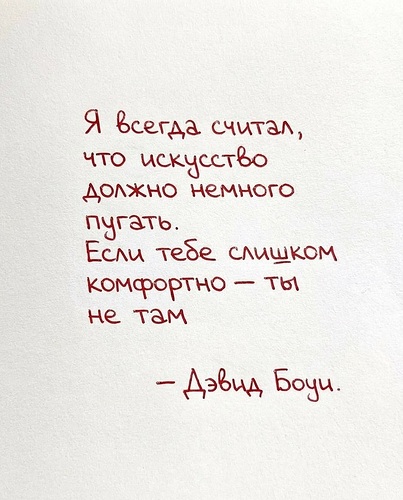 Я всегда считал,
что искусство
должно немного
пугать.
Если тебе слишком
комфортно – ты
не там
– Дэвид Боуи.